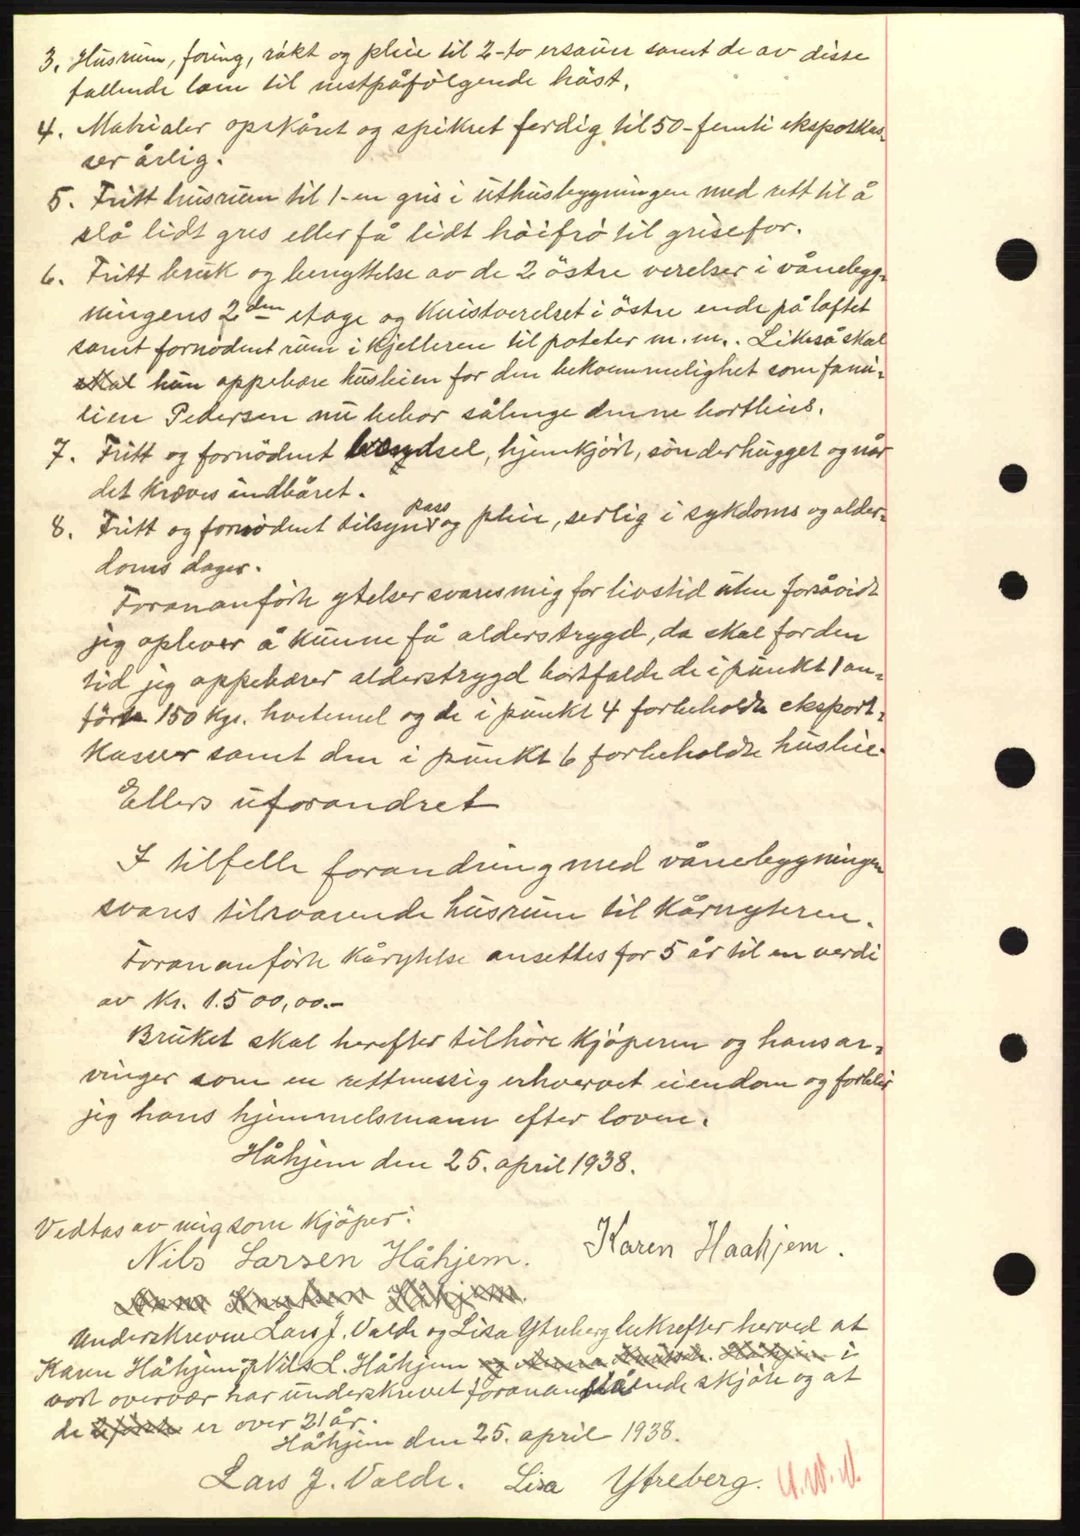 3. Husrum, foring, røkt og pleie til 2-to ersauer samt de av disse
fallende lam til nestpåfølgende høst.
4. Matrialer opskåret og spikret ferdig til 50-femti ekspotkas-
ser årlig.
5. Fritt husrum til 1-en gris i uthusbygningen med rett til å
slå lidt gres eller få lidt höifrö til grisefor.
6. Fritt bruk og benyttelse av de 2 östre verelser i vånebygg-
ningens 2den etage og kvistverelset i östre ende på loftet
samt fornödent rum i kjelleren til poteter m.m.. Likeså skal
skal hun oppebære husleien for den bekvemmelighet som fami-
lien Pedersen nu bebor sålenge denne bortleies.
7. Fritt og fornödent brendsel, hjemkjört, sönderhugget og når
det kræves indbåret.
8. Fritt og fornödent tilsyn, pass og pleie, serlig i sykdoms og alder-
doms dager.
Forananförte ytelser svares mig for livstid uten forsåvidt
jeg oplever å kunne få alderstrygd, da skal for den
tid jeg oppebærer alderstrygd bortfalde de i punkt 1 an-
förte 150 kgr. hvetemel og de i punkt 4 forbeholdte eksport-
kasser samt den i punkt 6 forbeholdte husleie.
Ellers uforandret
I tilfelle forandring med vånebygningen
svares tilsvarende husrum til kårnyteren.
Forananförte kårytelse ansettes for 5 år til en verdi
av kr. 1.500,00.-
Bruket skal herefter tilhöre kjöperen og hans ar-
vinger som en rettmessig erhvervet eiendom og forblir
jeg hans hjemmelsmann efter loven.
Håhjem den 25. april 1938.
Vedtas av mig som kjöper:
Nils Larsen Håhjem. Karen Haahjem.
Anna Knutsen Håhjem.
Underskrevne Lars J. Valde og Lisa Ytreberg bekrefter herved at
Karen Håhjem, Nils L. Håhjem og Anna Knutsd. Håhjem i
vort overvær har underskrevet foranstående skjöte og at
de er over 21 år.
Håhjem den 25. april 1938.
Lars J. Valde. Lisa Ytreberg.